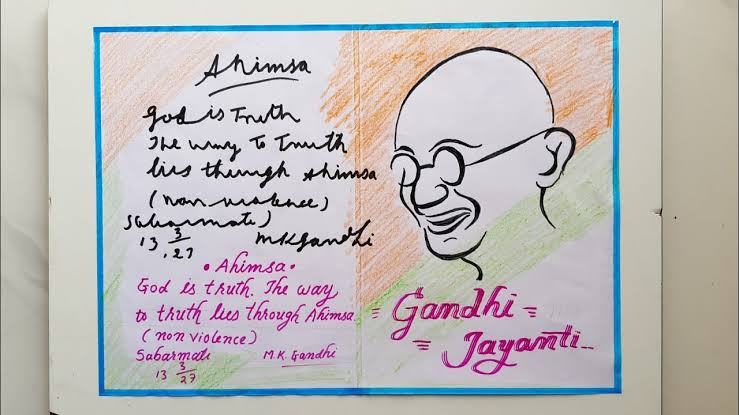 Ahimsa
God is Truth
The way to Truth
lies through Ahimsa
(non-violence)
Sabarmati
13 3/.27
M.K.Gandhi
• Ahimsa •
God is truth. The way
to truth lies through Ahimsa.
(non violence)
Sabarmati M.K. Gandhi
13 3/27
Gandhi
Jayanti